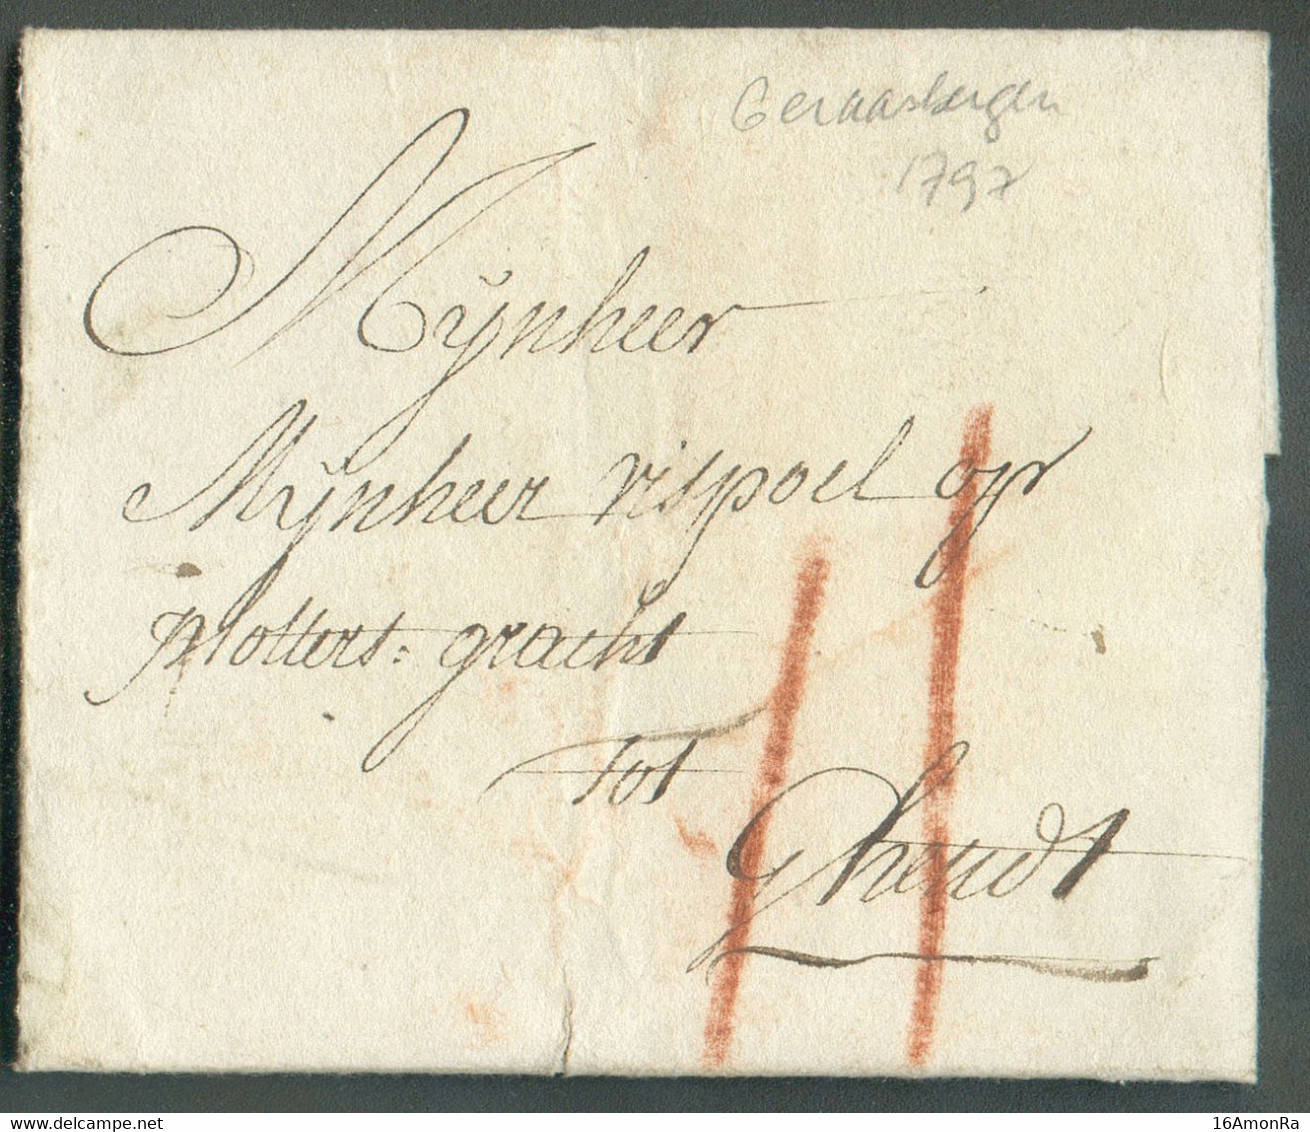 Geraasbergen
1797
Mÿnheer
Mÿnheer vispoel op
plotters: gracht
tot
Ghendt
delcampe.net
16AmonRa